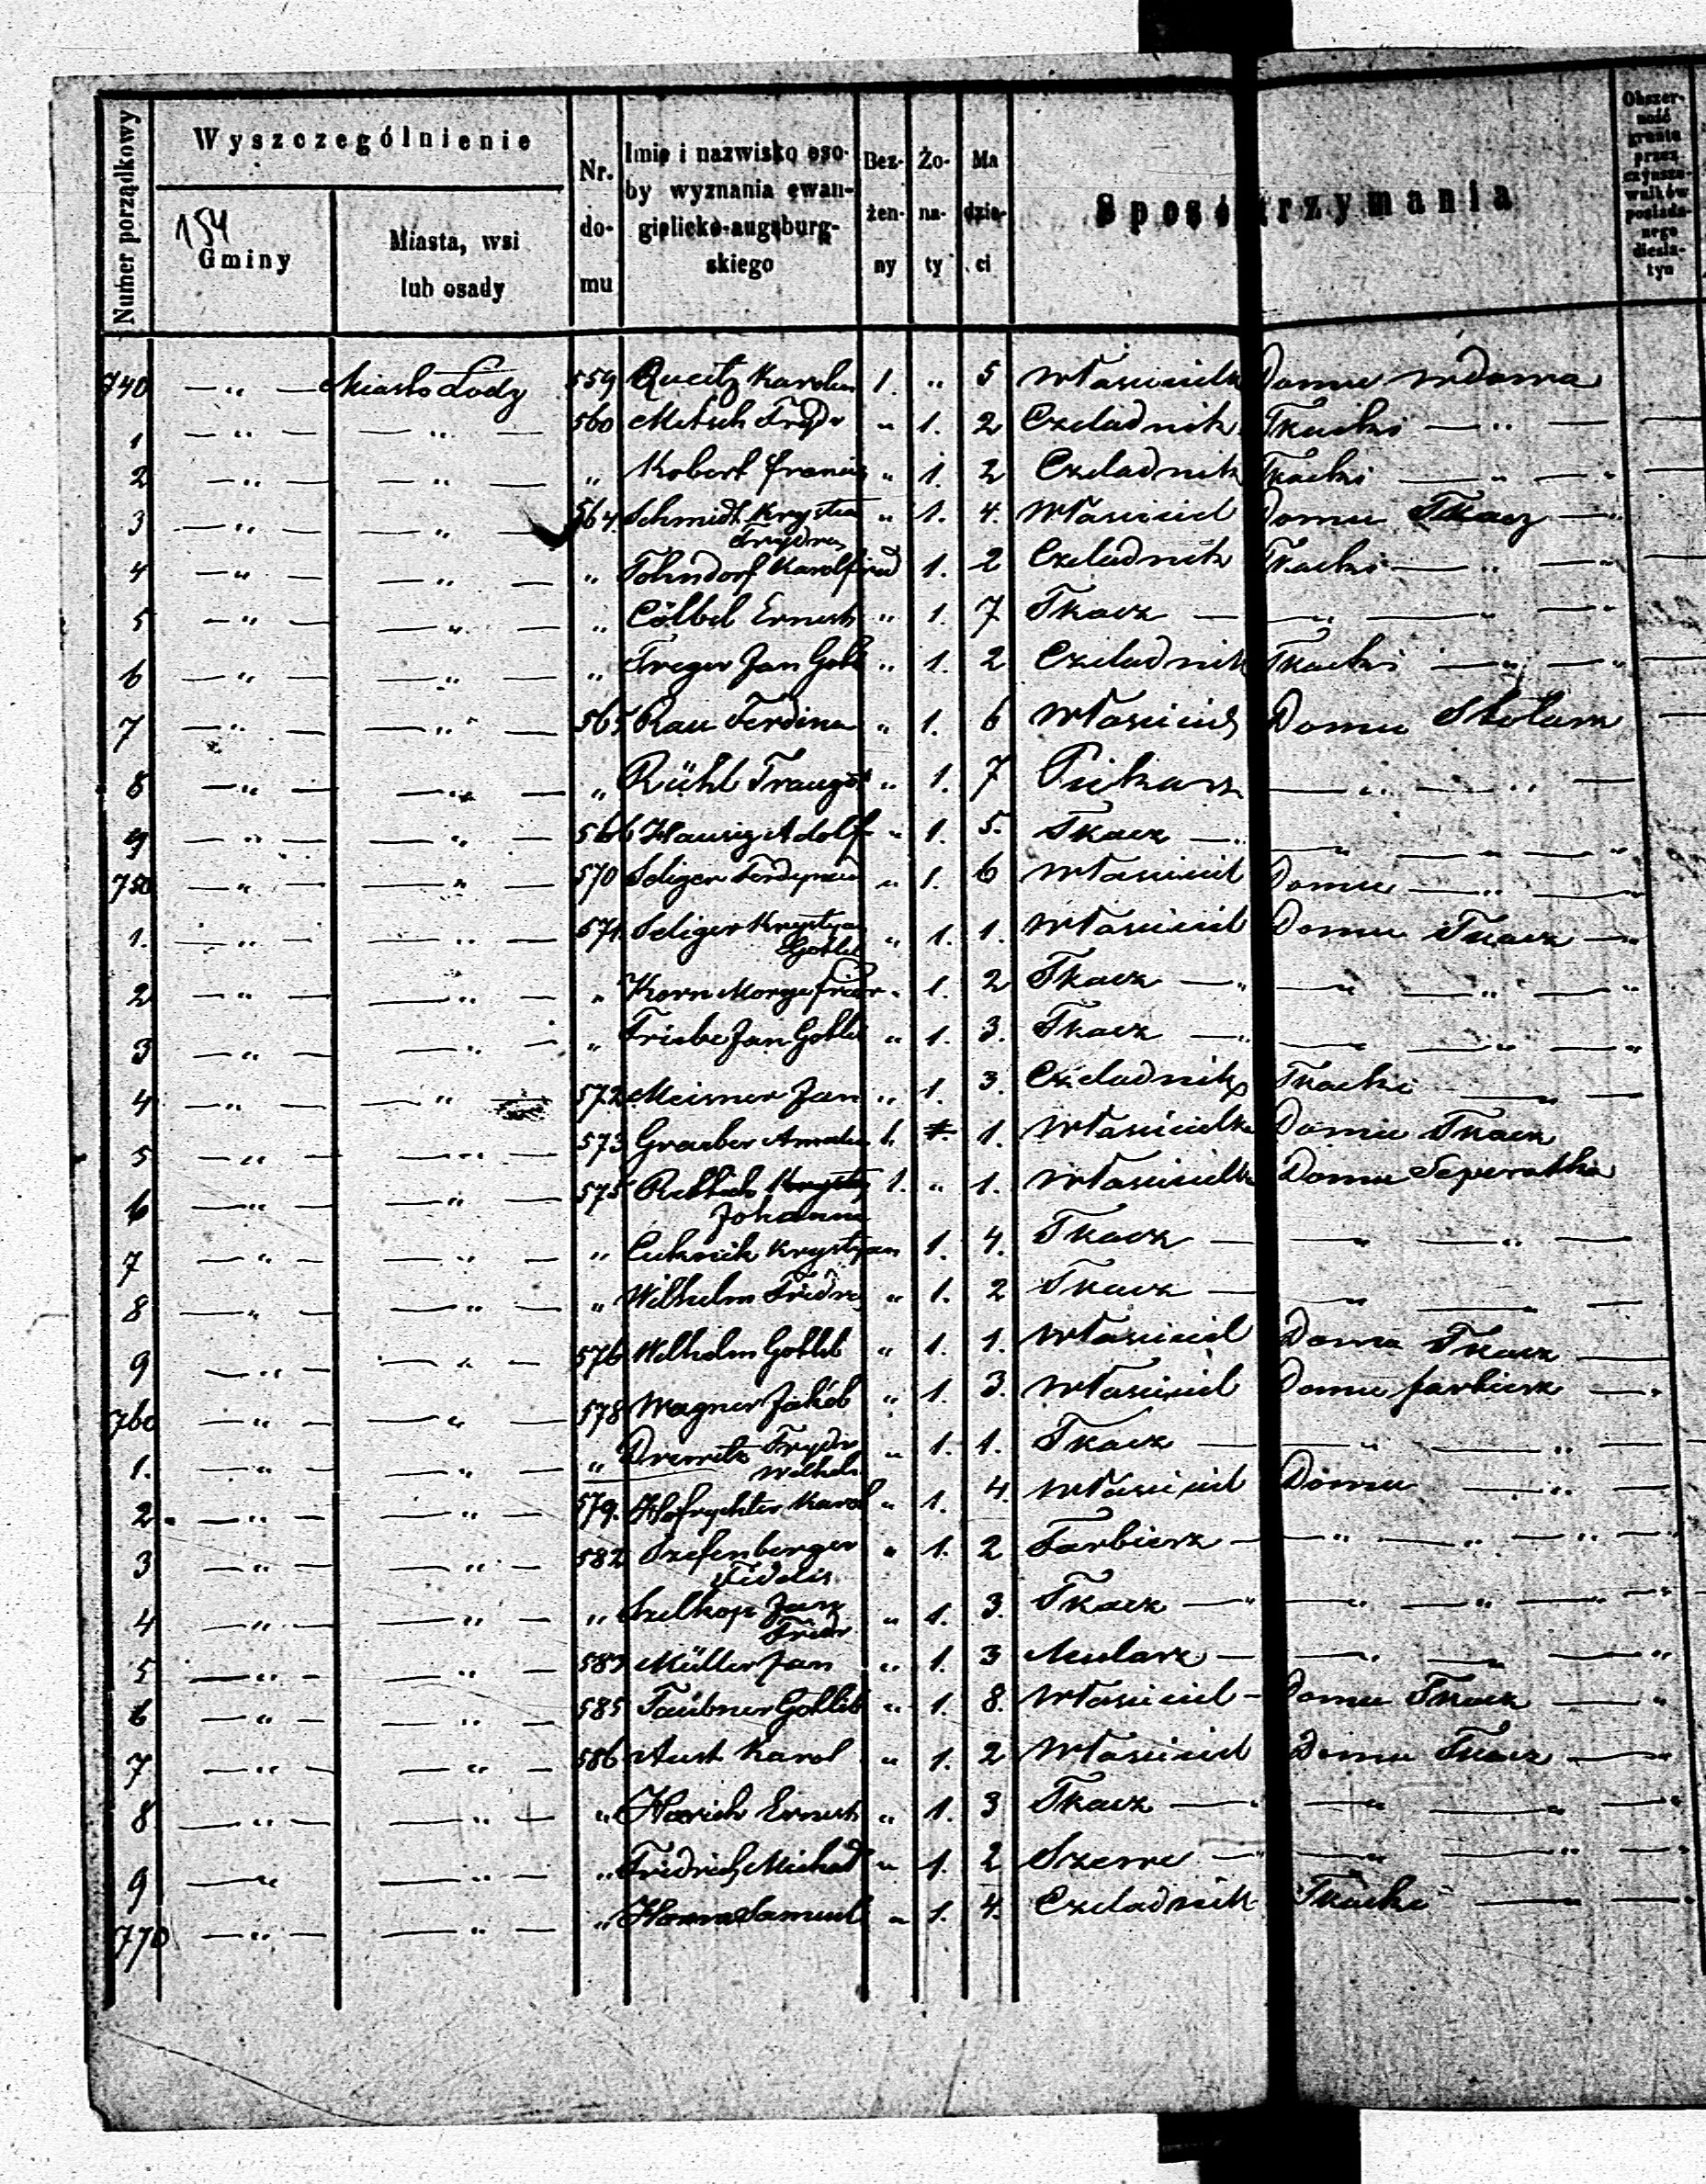 Numer porządkowy
Wyszczególnienie
154
Gminy
Miasta, wsi
lub osady
Nr.
do-
mu
Imię i nazwisko oso-
by wyznania ewan-
gielicko-augsburg-
skiego
Bez-
żen-
ny
Żo-
na-
ty
Ma
dzie-
ci
Sposó trzymania
Obszer-
ność
gruntu
przez
czynszo-
wników
posiada-
nego
diesia-
tyn
740 — " — Miasto Łody 559 Queitz Karolin 1. " 5 Własicielk Domu wdowa
1 — " — — " — 560 Mitsch Frydr " 1. 2 Czeladnik Tkacki — " —
2 — " — — " — " Kobert " 1. 2 Czeladnik Tkacki — " — "
3 — " — — " — 564 Schmidt Krystia " 1. 4. Własiciel Domu Tkacz — "
Frydrы
4 — " — — " — " Tohndorf Karol frid 1. 2 Czeladnik Tkacki — " — "
5 — " — — " — " Cölbel Ernest " 1. 7 Tkacz — — " — " — "
6 — " — — " — " Treger Jan Gotl " 1. 2 Czeladnik Tkacki — " — "
7 — " — — " — 565 Rau Ferdina " 1. 6 Własiciel Domu Stolarz
8 — " — — " — " Rühl Traugot " 1. 7 Piekarz — " — " —
9 — " — — " — 566 Hausig Adolf " 1. 5. Tkacz — " — " — " — "
750 — " — — " — 570 Seliger Ferdynand " 1. 6 Własiciel Domu — " — "
1. — " — — " — 571. Seliger Krystyan " 1. 1. Własiciel Domu Tkacz — "
Gotlib
2 — " — — " — " Korn fridr " 1. 2 Tkacz — " — " — " — "
3 — " — — " — " Triebe Jan Gotlib " 1. 3. Tkacz — " — " — " — "
4 — " — — " — 572 Meisner Jan " 1. 3. Czeladnik Tkacki — " —
5 — " — — " — 573 Graeber Amalia 1. 1. Własicielka Domu Tkacz
6 — " — — " — 575 1. " 1. Własicielka Domu Seperatka
Johanna
7 — " — — " — " Krystyan 1. 4. Tkacz — — " — " — "
8 — " — — " — " Wilhelm Fridr " 1. 2 Tkacz — — " — " —
9 — " — — " — 576 Wilhelm Gotlib " 1. 1. Własiciel Domu Tkacz —
760 — " — — " — 578 Wagner Jakób " 1. 3. Własiciel Domu farbierz — "
1. — " — — " — " Drewitz Frydr " 1. 1. Tkacz — — " — " — "
Wilhelm
2. — " — — " — 579. Hofrychter Karol " 1. 4. Własiciel Domu — " —
3 — " — — " — 582 Szefenberger " 1. 2 Farbierz — — " — " — " — "
Fidelis
4 — " — — " — " Szelkopf Jan " 1. 3. Tkacz — " — " — " — "
Fridr
5 — " — — " — 583 Müller Jan " 1. 3 Mularz — — " — " — "
6 — " — — " — 585 Taübner Gotlib " 1. 8. Własiciel — Domu Tkacz — "
7 — " — — " — 586 Aust Karol " 1. 2 Własiciel Domu Tkacz — "
8 — " — — " — " Harich Ernest " 1. 3 Tkacz — " — " — " — "
9 — " — — " — " Fridrich Michael " 1. 2 — " — " — " — "
770 — " — — " — " Samuel " 1. 4. Czeladnik Tkacki — " — "